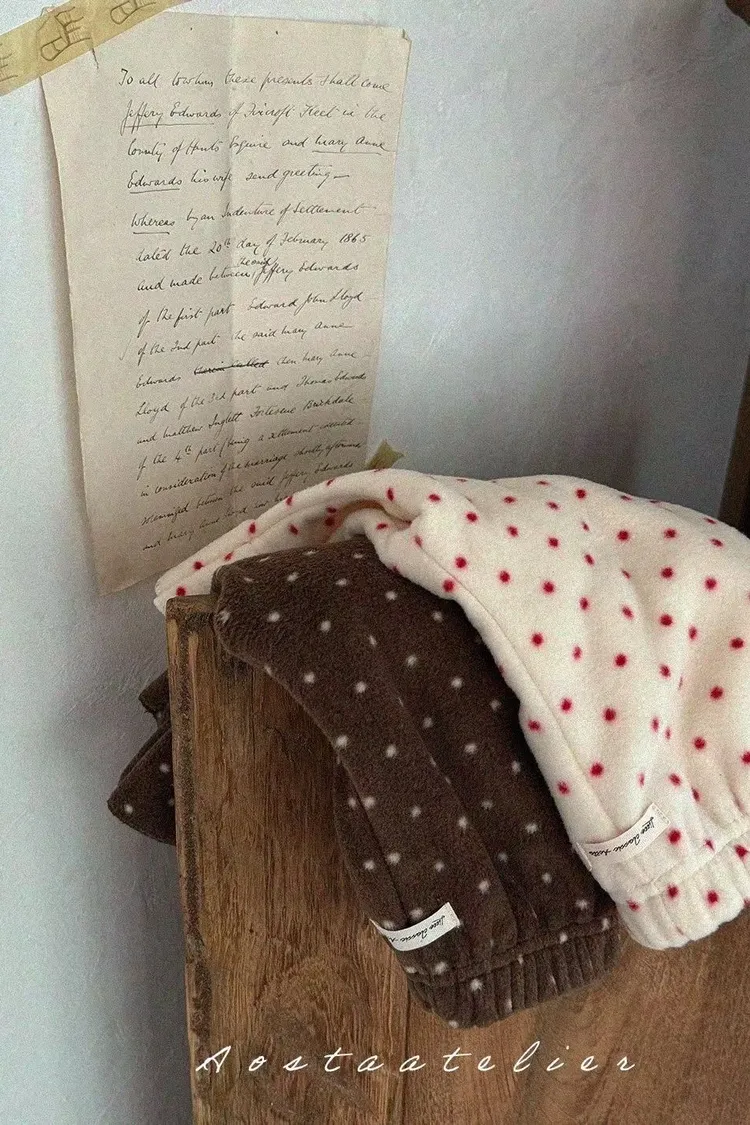 To all to whom these presents shall come
Jeffery Edwards of Fleet in the
County of Hants Esquire and Mary Anne
Edwards his wife send greeting
Whereas by an Indenture of Settlement
dated the 20th day of February 1865
and made between the said Jeffery Edwards
of the first part Edward John Lloyd
of the 2nd part the said Mary Anne
Edwards therein called then Mary Anne
Lloyd of the 3rd part and Thomas Edwards
and Matthew Inglett Fortescue Brickdale
of the 4th part (being a settlement executed
in consideration of the marriage shortly after
solemnized between the said Jeffery Edwards
and Mary Anne Lloyd
Aostaatelier